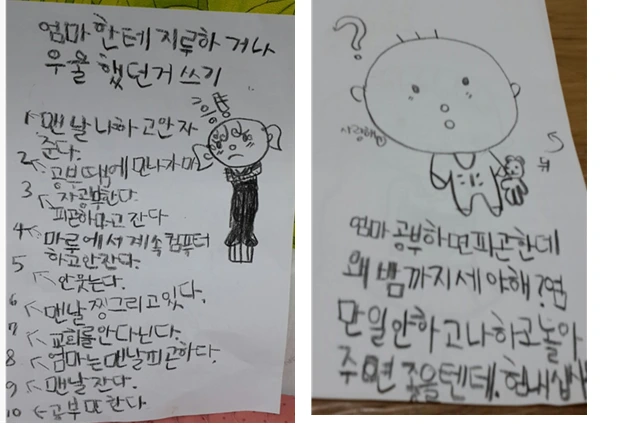 엄마한테 지루하거나
우울했던거쓰기
1 맨날 나하고안자
준다.
2 공부땜에 만나자마
3 자공부한다.
피곤하다고잔다
4 마루에서계속컴퓨터
하고안잔다.
5 안웃는다.
6 맨날찡그리고있다.
7 교회를안다닌다.
8 엄마는맨날피곤하다.
9 맨날잔다.
10 공부또한다.
흥
?
사랑해
뒤
엄마공부하면피곤한데
왜밤까지세야해?면
만일안하고나하고놀아
주면좋을텐데.힘내삽시